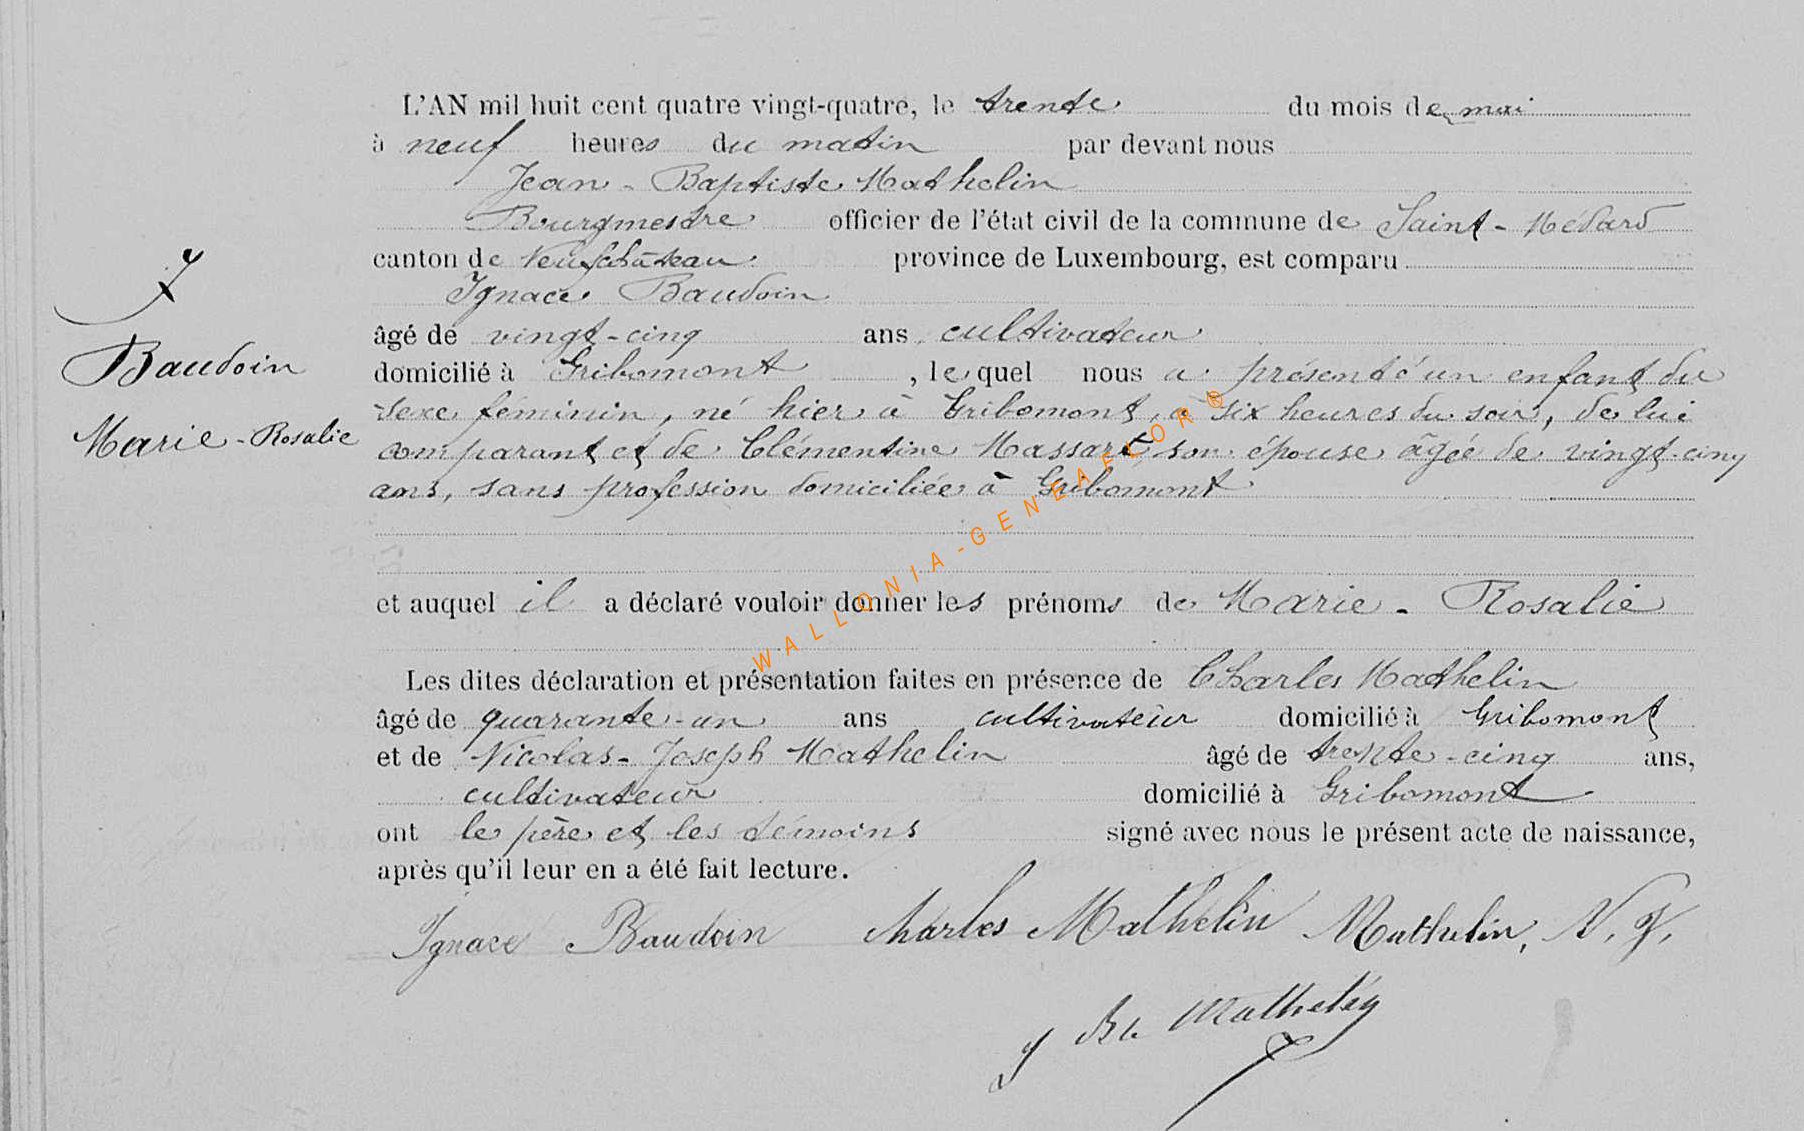 L'AN mil huit cent quatre vingt-quatre, le trente du mois de mai
à neuf heures du matin par devant nous
Jean-Baptiste Mathelin
Bourgmestre officier de l'état civil de la commune de Saint-Médard
canton de Neufchâteau province de Luxembourg, est comparu
Ignace Baudoin
âgé de vingt-cinq ans cultivateur
domicilié à Gribomont, lequel nous a présenté un enfant du
sexe féminin, né hier à Gribomont, à six heures du soir, de lui
comparant et de Clémentine Massart, son épouse âgée de vingt-cinq
ans, sans profession domiciliée à Gribomont
et auquel il a déclaré vouloir donner les prénoms de Marie-Rosalie
Les dites déclaration et présentation faites en présence de Charles Mathelin
âgé de quarante-un ans cultivateur domicilié à Gribomont
et de Nicolas-Joseph Mathelin âgé de trente-cinq ans,
cultivateur domicilié à Gribomont
ont le père et les témoins signé avec nous le présent acte de naissance,
après qu'il leur en a été fait lecture.
Ignace Baudoin Charles Mathelin Mathelin, N. J.
J Bte Mathelin
Baudoin
Marie-Rosalie
WALLONIA-GENEAFLOR®